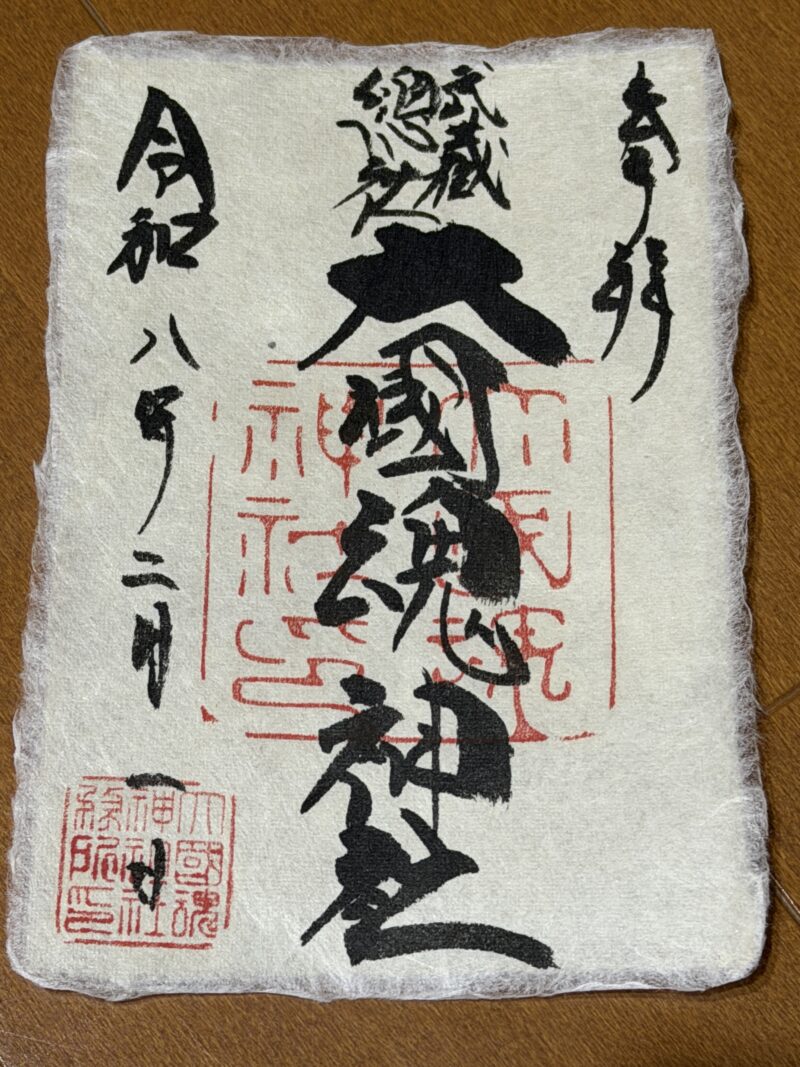 奉拝
武蔵
總社
大國魂神社
令和八年二月一日
大國魂
神社印
大國魂
神社社
務所印